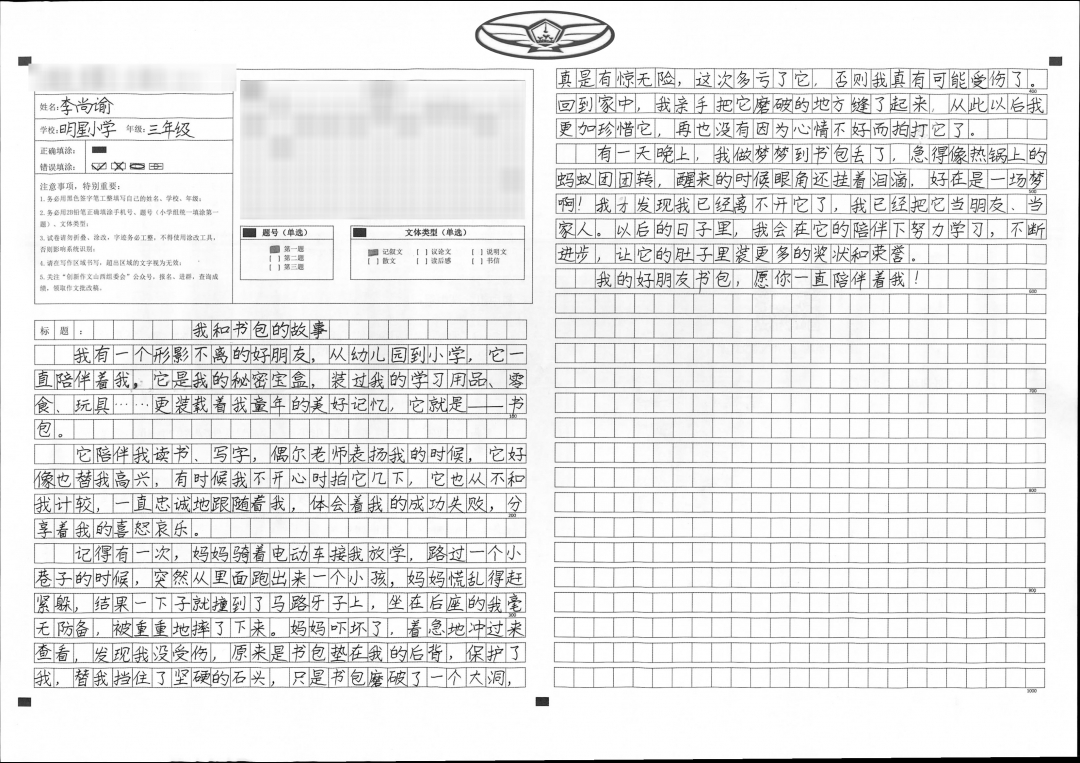 姓名:李尚谕
学校:明星小学 年级:三年级
正确填涂:
错误填涂:
注意事项,特别重要:
1.务必用黑色签字笔工整填写自己的姓名、学校、年级;
2.务必用2B铅笔正确填涂手机号、题号(小学组统一填涂第一
题)、文体类型;
3.试卷请勿折叠、涂改,字迹务必工整,不得使用涂改工具,
否则影响系统识别;
4.请在写作区域书写,超出区域的文字视为无效;
题号(单选)
第一题
[ ] 第二题
[ ] 第三题
文体类型(单选)
记叙文 [ ] 议论文 [ ] 说明文
[ ] 散文 [ ] 读后感 [ ] 书信
标题:我和书包的故事
我有一个形影不离的好朋友,从幼儿园到小学,它一
直陪伴着我。它是我的秘密宝盒,装过我的学习用品、零
食、玩具……更装载着我童年的美好记忆,它就是——书
100
包。
它陪伴我读书、写字,偶尔老师表扬我的时候,它好
像也替我高兴,有时候我不开心时拍它几下,它也从不和
我计较,一直忠诚地跟随着我,体会着我的成功失败,分
200
享着我的喜怒哀乐。
记得有一次,妈妈骑着电动车接我放学,路过一个小
巷子的时候,突然从里面跑出来一个小孩,妈妈慌乱得赶
紧躲,结果一下子就撞到了马路牙子上,坐在后座的我毫
300
无防备,被重重地摔了下来。妈妈吓坏了,着急地冲过来
查看,发现我没受伤,原来是书包垫在我的后背,保护了
我,替我挡住了坚硬的石头,只是书包磨破了一个大洞,
真是有惊无险,这次多亏了它,否则我真有可能受伤了。
400
回到家中,我亲手把它磨破的地方缝了起来,从此以后我
更加珍惜它,再也没有因为心情不好而拍打它了。
有一天晚上,我做梦梦到书包丢了,急得像热锅上的
蚂蚁团团转,醒来的时候眼角还挂着泪滴,好在是一场梦
500
啊!我才发现我已经离不开它了,我已经把它当朋友、当
家人。以后的日子里,我会在它的陪伴下努力学习,不断
进步,让它的肚子里装更多的奖状和荣誉。
我的好朋友书包,愿你一直陪伴着我!
600
700
800
900
1000